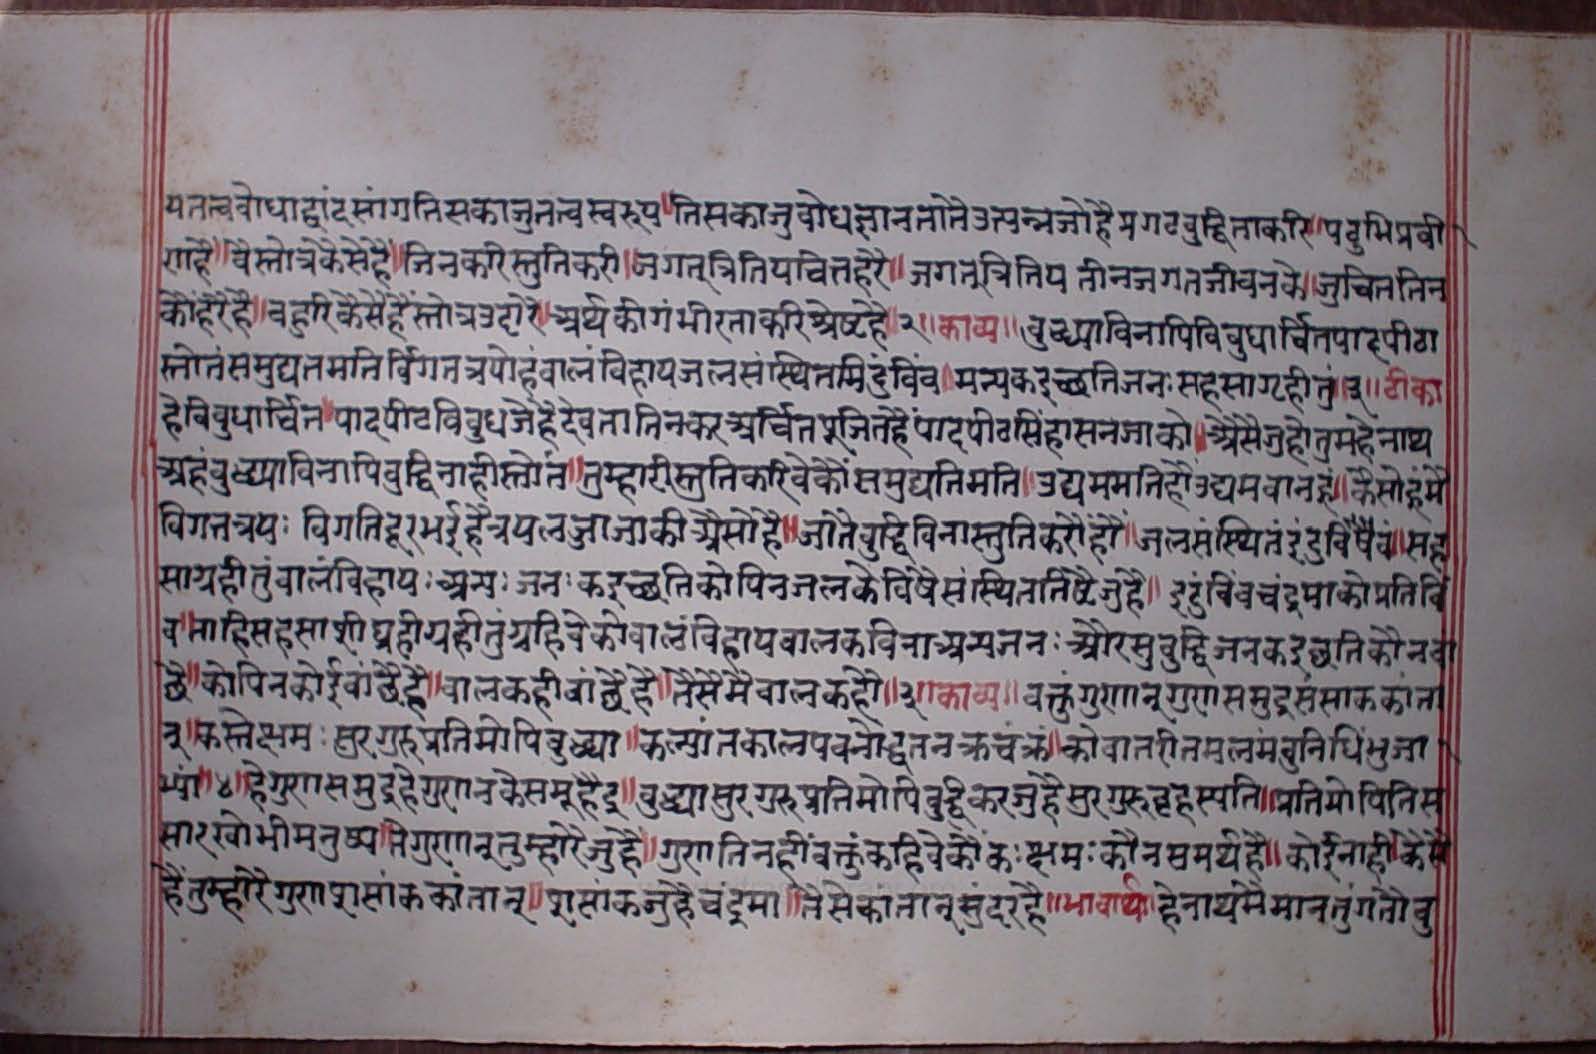 यतत्त्ववोधाद्वादसांगतिसकाजुतत्वस्वरुप॥तिसकाजुवोधज्ञानतातैउत्पन्नजोहैप्रगटवुद्धिताकरि॥पटुभिप्रवी
णहै॥वैस्तोत्रकैसैहैं॥जिनकरिस्तुतिकरी॥जगत्त्रितियचित्तहरै॥जगत्त्रितियतीनजगतजीवनके॥जुचित्ततिन
कौंहरैहै॥वहुरिकैसैहैंस्तोत्रउदारै॥अर्थकीगंभीरताकरिश्रेष्टहै॥२॥काव्य॥वुद्ध्याविनापिविवुधार्चितपादपीठ॥
स्तोतंसमुद्यतमतिर्विगतत्रपोहंवालंविहायजलसंस्थितमिंदुंविंव॥मन्यकइच्छतिजनःसहसागृहीतुं॥३॥टीका
हेविवुधार्चित॥पादपीठविवुधजेहैदेवतातिनकरअर्चितपूजितहैंपादपीठसिंहासनजाको॥अैसैजुहोतुमहेनाथ
अहंवुद्ध्याविनापिवुद्धिनाहीस्तोतं॥तुम्हारीस्तुतिकरिवेकौंसमुद्यतिमति॥उद्यममतिहौंउद्यमवानहूं॥कैसोहूंमै
विगतत्रपः विगतिदूरभईहैत्रपलज्जाजाकीअैसोहै॥जातैवुद्धिविनास्तुतिकरौहौं॥जलसंस्थितंइंदुविंषैवं॥सह
साग्रहीतुंवालंविहायःअन्यःजनःकइच्छतिकोपिनजलकेविषैसंस्थिततिष्टैजुहै॥इदुंविंवचंद्रमाकोप्रतिविं
व॥ताहिसहसाशीघ्रहीग्रहीतुंग्रहिवेकोवालंविहायवालकविनाअन्यजनःऔरसुवुद्धिजनकइछतिकौनवा
छै॥कोपिनकोईवांछैहै॥वालकहीवांछैहै॥तैसैमैवालकहौ॥३॥काव्य॥वक्तुंगुणान्गुणसमुद्रसंसाककांता
न्॥कस्तेक्षमःसुरगुरुप्रतिमोपिवुद्ध्या॥कल्पांतकालपवनोद्धतनक्रचंक्रं॥कोवातरीतमलमंवुनिधिंभुजा
भ्यां॥४॥हेगुणसमुद्रहेगुणनकेसमूहैद्र॥वुद्ध्यासुरगुरुप्रतिमोपिवुद्धिकरजुहैसुरगुरुवृहस्पति॥प्रतिमोपितिस
सारखोभीमनुष्य॥तेगुणान्तुम्हारेजुहै॥गुणतिनहींवक्तुंकहिवेकौंकःक्षमःकौनसमर्थहै॥कोईनाहीं॥कैसे
हैंतुम्हारैगुणशसांककांतान्॥शसांकजुहैचंद्रमा॥तैसेकांतान्सुंदरहै॥भावार्थ॥हेनाथमैमानतुंगतोवु